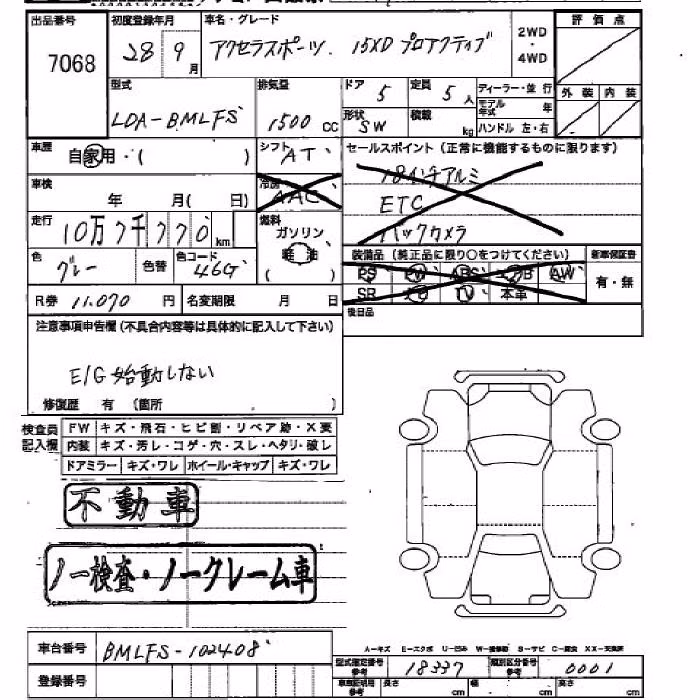 出品番号 初度登録年月 車名・グレード 2WD・4WD 評価点
7068 28 9月 アクセラスポーツ 15XD プロアクティブ
型式 排気量 ドア 5 定員 5人 ディーラー・並行 外装 内装
LDA-BMLFS 1500cc 形状 SW 積載 kg モデル年式 年
ハンドル 左・右
車歴 自家用・( ) シフト AT セールスポイント(正常に機能するものに限ります)
車検 年 月( 日) 冷房 AAC 18インチアルミ
ETC
走行 10万7千770km 燃料 ガソリン 軽油 ( ) バックカメラ
色 グレー 色替 色コード 46G 装備品(純正品に限り○をつけてください) 新車保証書
PS PW ABS AW 有・無
R券 11,070円 名変期限 月 日 SR TV 本革
注意事項申告欄(不具合内容等は具体的に記入して下さい) 後日品
E/G始動しない
修復歴 有(箇所 )
検査員記入欄 FW キズ・飛石・ヒビ割・リペア跡・X要
内装 キズ・汚レ・コゲ・穴・スレ・ヘタリ・破レ
ドアミラー キズ・ワレ ホイール・キャップ キズ・ワレ
不動車
ノー検査・ノークレーム車
A-キズ E-エクボ U-凹み W-補修跡 S-サビ C-腐食 XX-交換済
車台番号 BMLFS-102408 型式指定番号 参考 18337 類別区分番号 参考 0001
登録番号 車庫証明用 参考 長さ cm 幅 cm 高さ cm